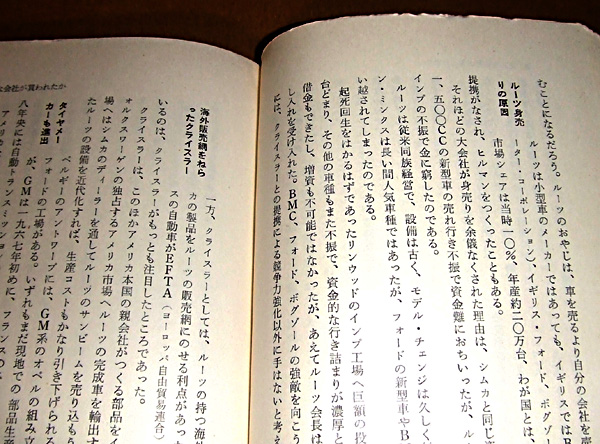 むことになるだろう。ルーツのおやじは、車を売るより自分の会社を売
ルーツ身売
りの原因
ルーツは小型車のメーカーではあっても、イギリスでは
ーター・コーポレーション）、イギリス・フォード、ボグゾー
市場シェアは当時一〇％、年産約二〇万台、わが国とは、
提携がなされ、ヒルマンをつくったこともある。
それほどの大会社が身売りを余儀なくされた理由は、シムカと同じ
一、五〇〇ＣＣの新型車の売れ行き不振で資金難におちいったが、ル
インプの不振で金に窮したのである。
ルーツは従来同族経営で、設備は古く、モデル・チェンジは久しく
ン・ミンクスは長い間人気車種ではあったが、フォードの新型車やＢ
い越されてしまったのである。
起死回生をはかるはずであったリンウッドのインプ工場へ巨額の投
台どまり、その他の車種もまた不振で、資金的な行き詰まりが濃厚と
借金もできたし、増資も不可能ではなかったが、あえてルーツ会長は
し入れを受け入れた。ＢＭＣ、フォード、ボグゾールの強敵を向こう
には、クライスラーとの提携による競争力強化以外に手はないと考え
会社が買われたか
海外販売網をねら
ったクライスラー
一方、クライスラーとしては、ルーツの持つ海
カの製品をルーツの販売網にのせる利点があっ
スの自動車がＥＦＴＡ（ヨーロッパ自由貿易連合）
いるのは、クライスラーがもっとも注目したところであった。
クライスラーは、このほかアメリカ本国の親会社がつくる部品をイ
ォルクスワーゲンの独占するアメリカ市場へルーツの完成車を輸出す
場へはシムカのディーラーを通してルーツのサンビームを売り込もう
たルーツの設備を近代化すれば、生産コストもかなり引き下げられる
タイヤメー
カーも進出
ベルギーのアントワープには、ＧＭ系のオペルの組み立
フォードの工場がある。いずれもまだ現地での部品生産
が、ＧＭは一九六七年初めに、フランスの
八年央には自動トランスミッション